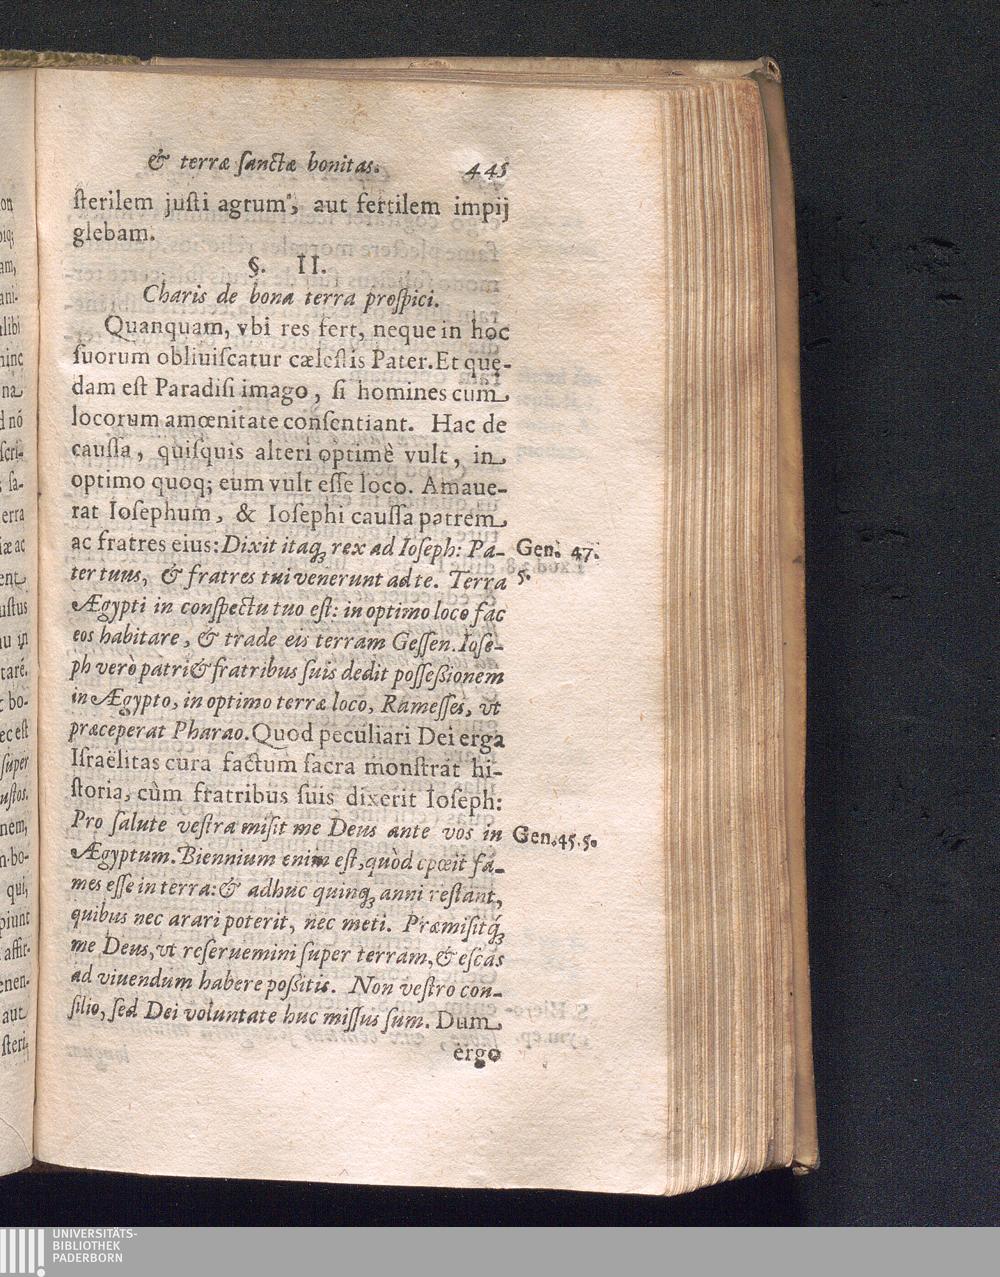 & terræ ſanctæ bonitas. 445
ſterilem juſti agrum, aut fertilem impij
glebam.
§. II.
Charis de bona terra proſpici.
Quanquam, vbi res fert, neque in hoc
ſuorum obliuiſcatur cæleſtis Pater. Et quę-
dam eſt Paradiſi imago, ſi homines cum
locorum amœnitate conſentiant. Hac de
cauſſa, quiſquis alteri optimè vult, in
optimo quoq; eum vult eſſe loco. Amaue-
rat Ioſephum, & Ioſephi cauſſa patrem
ac fratres eius: Dixit itaq; rex ad Ioſeph: Pa-
ter tuus, & fratres tui venerunt ad te. Terra
Ægypti in conſpectu tuo eſt: in optimo loco fac
eos habitare, & trade eis terram Geſſen. Ioſe-
ph verò patri & fratribus ſuis dedit poſſeßionem
in Ægypto, in optimo terræ loco, Rameſſes, vt
præceperat Pharao. Quod peculiari Dei erga
Iſraëlitas cura factum ſacra monſtrat hi-
ſtoria, cùm fratribus ſuis dixerit Ioſeph:
Pro ſalute veſtra miſit me Deus ante vos in
Ægyptum. Biennium enim eſt, quòd cpœit fa-
mes eſſe in terra: & adhuc quinq; anni reſtant,
quibus nec arari poterit, nec meti. Præmiſitq́;
me Deus, vt reſeruemini ſuper terram, & eſcas
ad viuendum habere poßitis. Non veſtro con-
ſilio, ſed Dei voluntate huc miſſus ſum. Dum
ergo
Gen. 47.
5.
Gen. 45. 5.
UNIVERSITÄTS-
BIBLIOTHEK
PADERBORN